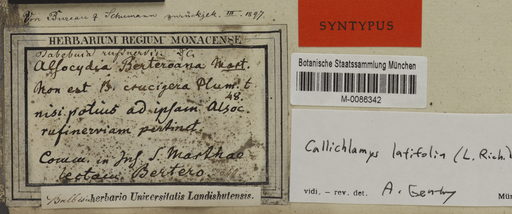 Von Bureau & Schumann zurückgek. III. 1897.
HERBARIUM REGIUM MONACENSE
Tabebuia rufinervis DC.
Alsocydia Berteroana Mart.
Non est B. crucigera Plum. t.
48.
nisi potius ad ipsam Alsoc.
rufinerviam pertinet
Comm. in Ins. S. Marthae
lectam Bertero
herbario Universitatis Landishutensis.
SYNTYPUS
Botanische Staatssammlung München
M-0086342
Callichlamys latifolia (L. Rich.)
vidi. – rev. det. A. Gentry
Mün